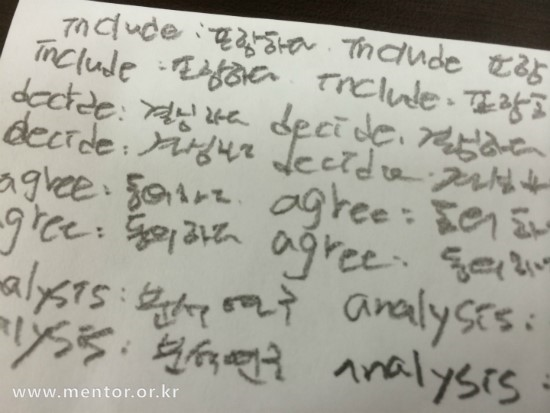 include : 포함하다. include 포함
include : 포함하다 include. 포함하
decide: 결심하다 decide. 결심하다
decide: 결심하다 decide 결심
agree: 동의하다 agree: 동의 하
agree: 동의하다 agree. 동의하
analysis: 분석 연구 analysis:
alysis: 분석연구 analysis:
www.mentor.or.kr